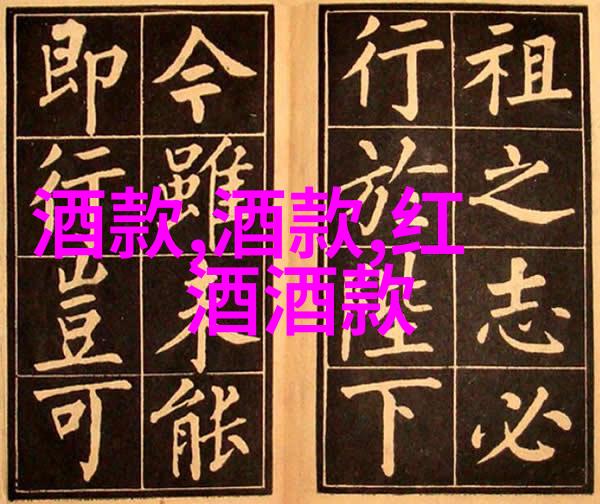 祖之志必
行於陛下
今雖未能
即行豈可
酒款,酒款,红
酒酒款